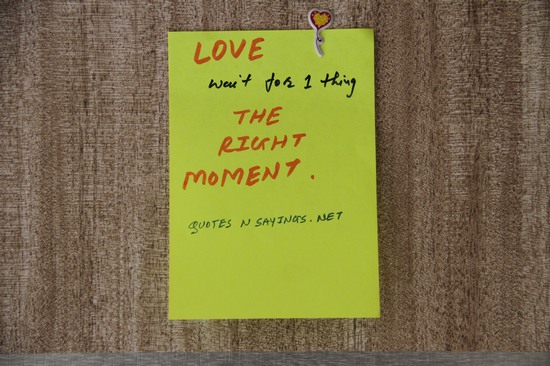 LOVE
wait for 1 thing
THE
RIGHT
MOMENT.
QUOTES N SAYINGS.NET